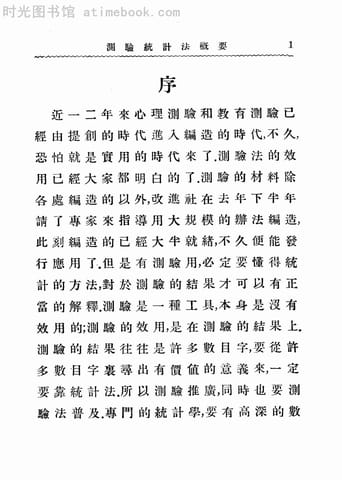 时光图书馆 atimebook.com
測驗統計法概要 1
序
近一二年來心理測驗和教育測驗已
經由提創的時代進入編造的時代,不久,
恐怕就是實用的時代來了.測驗法的效
用已經大家都明白的了.測驗的材料除
各處編造的以外,改進社在去年下半年
請了專家來指導用大規模的辦法編造,
此刻編造的已經大半就緒,不久便能發
行應用了.但是有測驗用,必定要懂得統
計的方法,對於測驗的結果才可以有正
當的解釋.測驗是一種工具,本身是沒有
效用的;測驗的效用,是在測驗的結果上.
測驗的結果往往是許多數目字,要從許
多數目字裏尋出有價值的意義來,一定
要靠統計法.所以測驗推廣,同時也要測
驗法普及.專門的統計學,要有高深的數